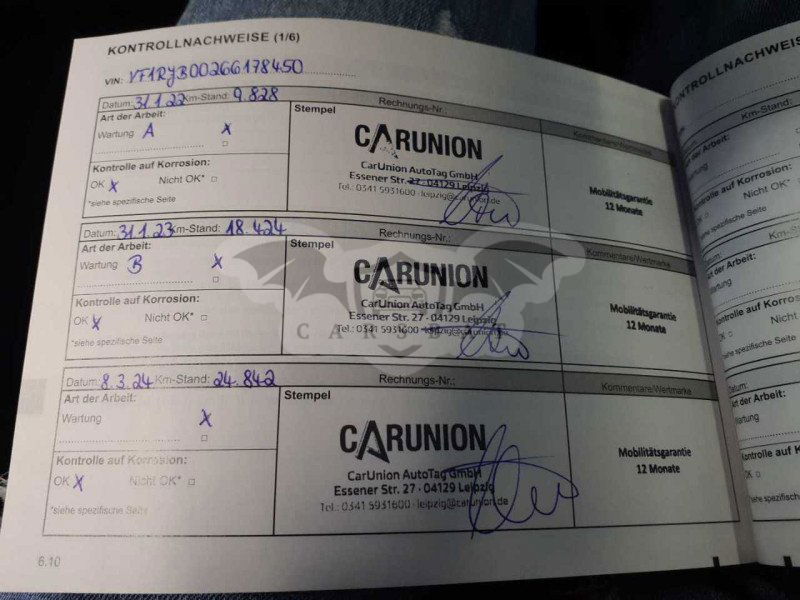 KONTROLLNACHWEISE (1/6)
VIN: VF1RJB00266178450
Datum: 31.1.22 Km-Stand: 9.828 Rechnungs-Nr.:
Art der Arbeit: Stempel Kommentare/Wertmarke
Wartung A X
CARUNION
CarUnion AutoTag GmbH
Essener Str. 27 - 04129 Leipzig
Tel.: 0341 5931600 - leipzig@carunion.de
Kontrolle auf Korrosion:
OK X Nicht OK* □
*siehe spezifische Seite
Mobilitätsgarantie
12 Monate
Datum: 31.1.23 Km-Stand: 18.424 Rechnungs-Nr.:
Art der Arbeit: Stempel Kommentare/Wertmarke
Wartung B X
CARUNION
CarUnion AutoTag GmbH
Essener Str. 27 - 04129 Leipzig
Tel.: 0341 5931600 - leipzig@carunion.de
Kontrolle auf Korrosion:
OK X Nicht OK* □
*siehe spezifische Seite
Mobilitätsgarantie
12 Monate
Datum: 8.3.24 Km-Stand: 24.842 Rechnungs-Nr.:
Art der Arbeit: Stempel Kommentare/Wertmarke
Wartung X
CARUNION
CarUnion AutoTag GmbH
Essener Str. 27 - 04129 Leipzig
Tel.: 0341 5931600 - leipzig@carunion.de
Kontrolle auf Korrosion:
OK X Nicht OK* □
*siehe spezifische Seite
Mobilitätsgarantie
12 Monate
6.10
KONTROLLNACHWEISE
VIN:
Datum: Km-Stand:
Art der Arbeit:
Wartung
Kontrolle auf Korrosion:
Nicht OK*
*siehe spezifische Seite
Datum: Km-St
Art der Arbeit:
Wartung
Kontrolle auf Korrosion:
OK □ Nicht OK
*siehe spezifische Seite
Datum:
Art der Arbeit:
Wartung
Kontrolle auf Korro
OK □ Nicht
*siehe spezifische Se